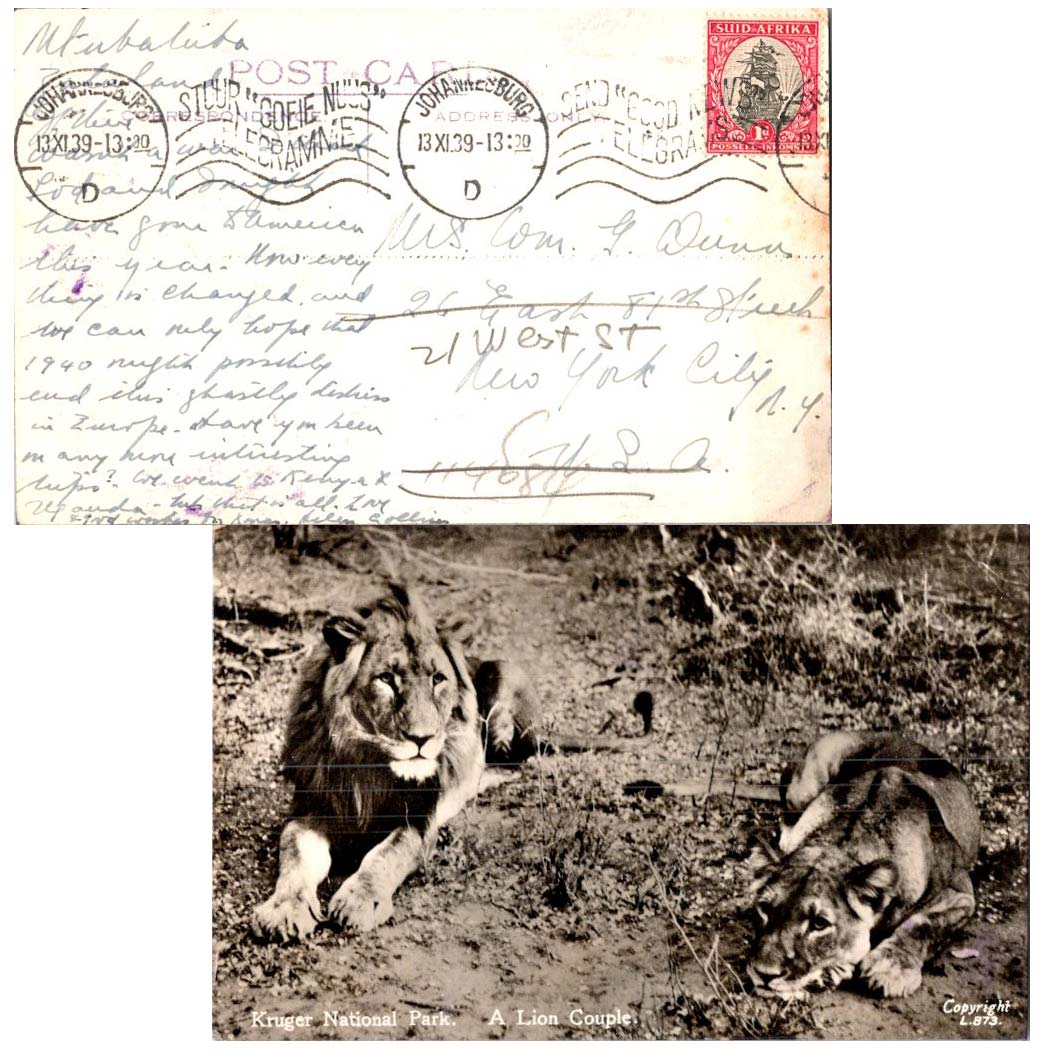 Mtubatuba
Zululand
POST CARD
CORRESPONDENCE
ADDRESS ONLY
SUID-AFRIKA
1D
POSSEËL-INKOMSTE
JOHANNESBURG
13 XI.39-13:00
D
STUUR "GOEIE NUUS"
TELEGRAMME
JOHANNESBURG
13 XI.39-13:00
D
SEND "GOOD NEWS"
TELEGRAMS
13 XI
wasn't a war
God and I might
have gone to America
this year. How every
thing is changed, and
we can only hope that
1940 might possibly
end this ghastly distress
in Europe. Have you been
on any more interesting
trips? We went to Kenya &
Uganda - but that is all. Love
& good wishes for Xmas. Collins
Mrs. Com. G. Dunn
26 East 81st Street
21 West St
New York City
N.Y.
U.S.A.
Kruger National Park. A Lion Couple.
Copyright
L.873.